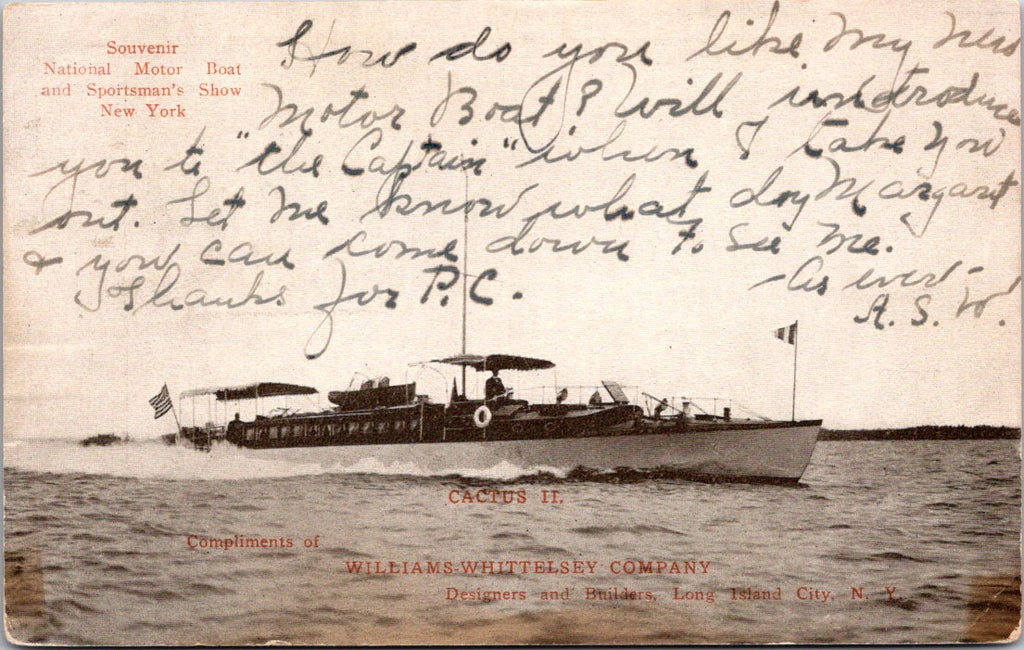 Souvenir
National Motor Boat
and Sportsman's Show
New York
How do you like my new
Motor Boat? Will undtroduce
you to "the Captain" when I take you
out. Let me know what day Margaret
& you can come down to see me.
Thanks for P.C.
-As ever-
A. S. W.
CACTUS II.
Compliments of
WILLIAMS-WHITTELSEY COMPANY
Designers and Builders, Long Island City, N. Y.